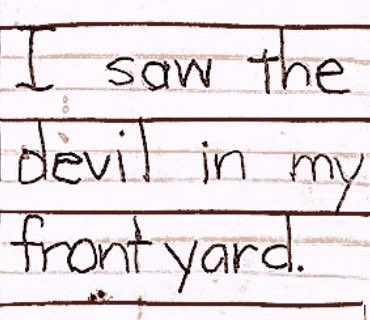 I saw the
devil in my
front yard.